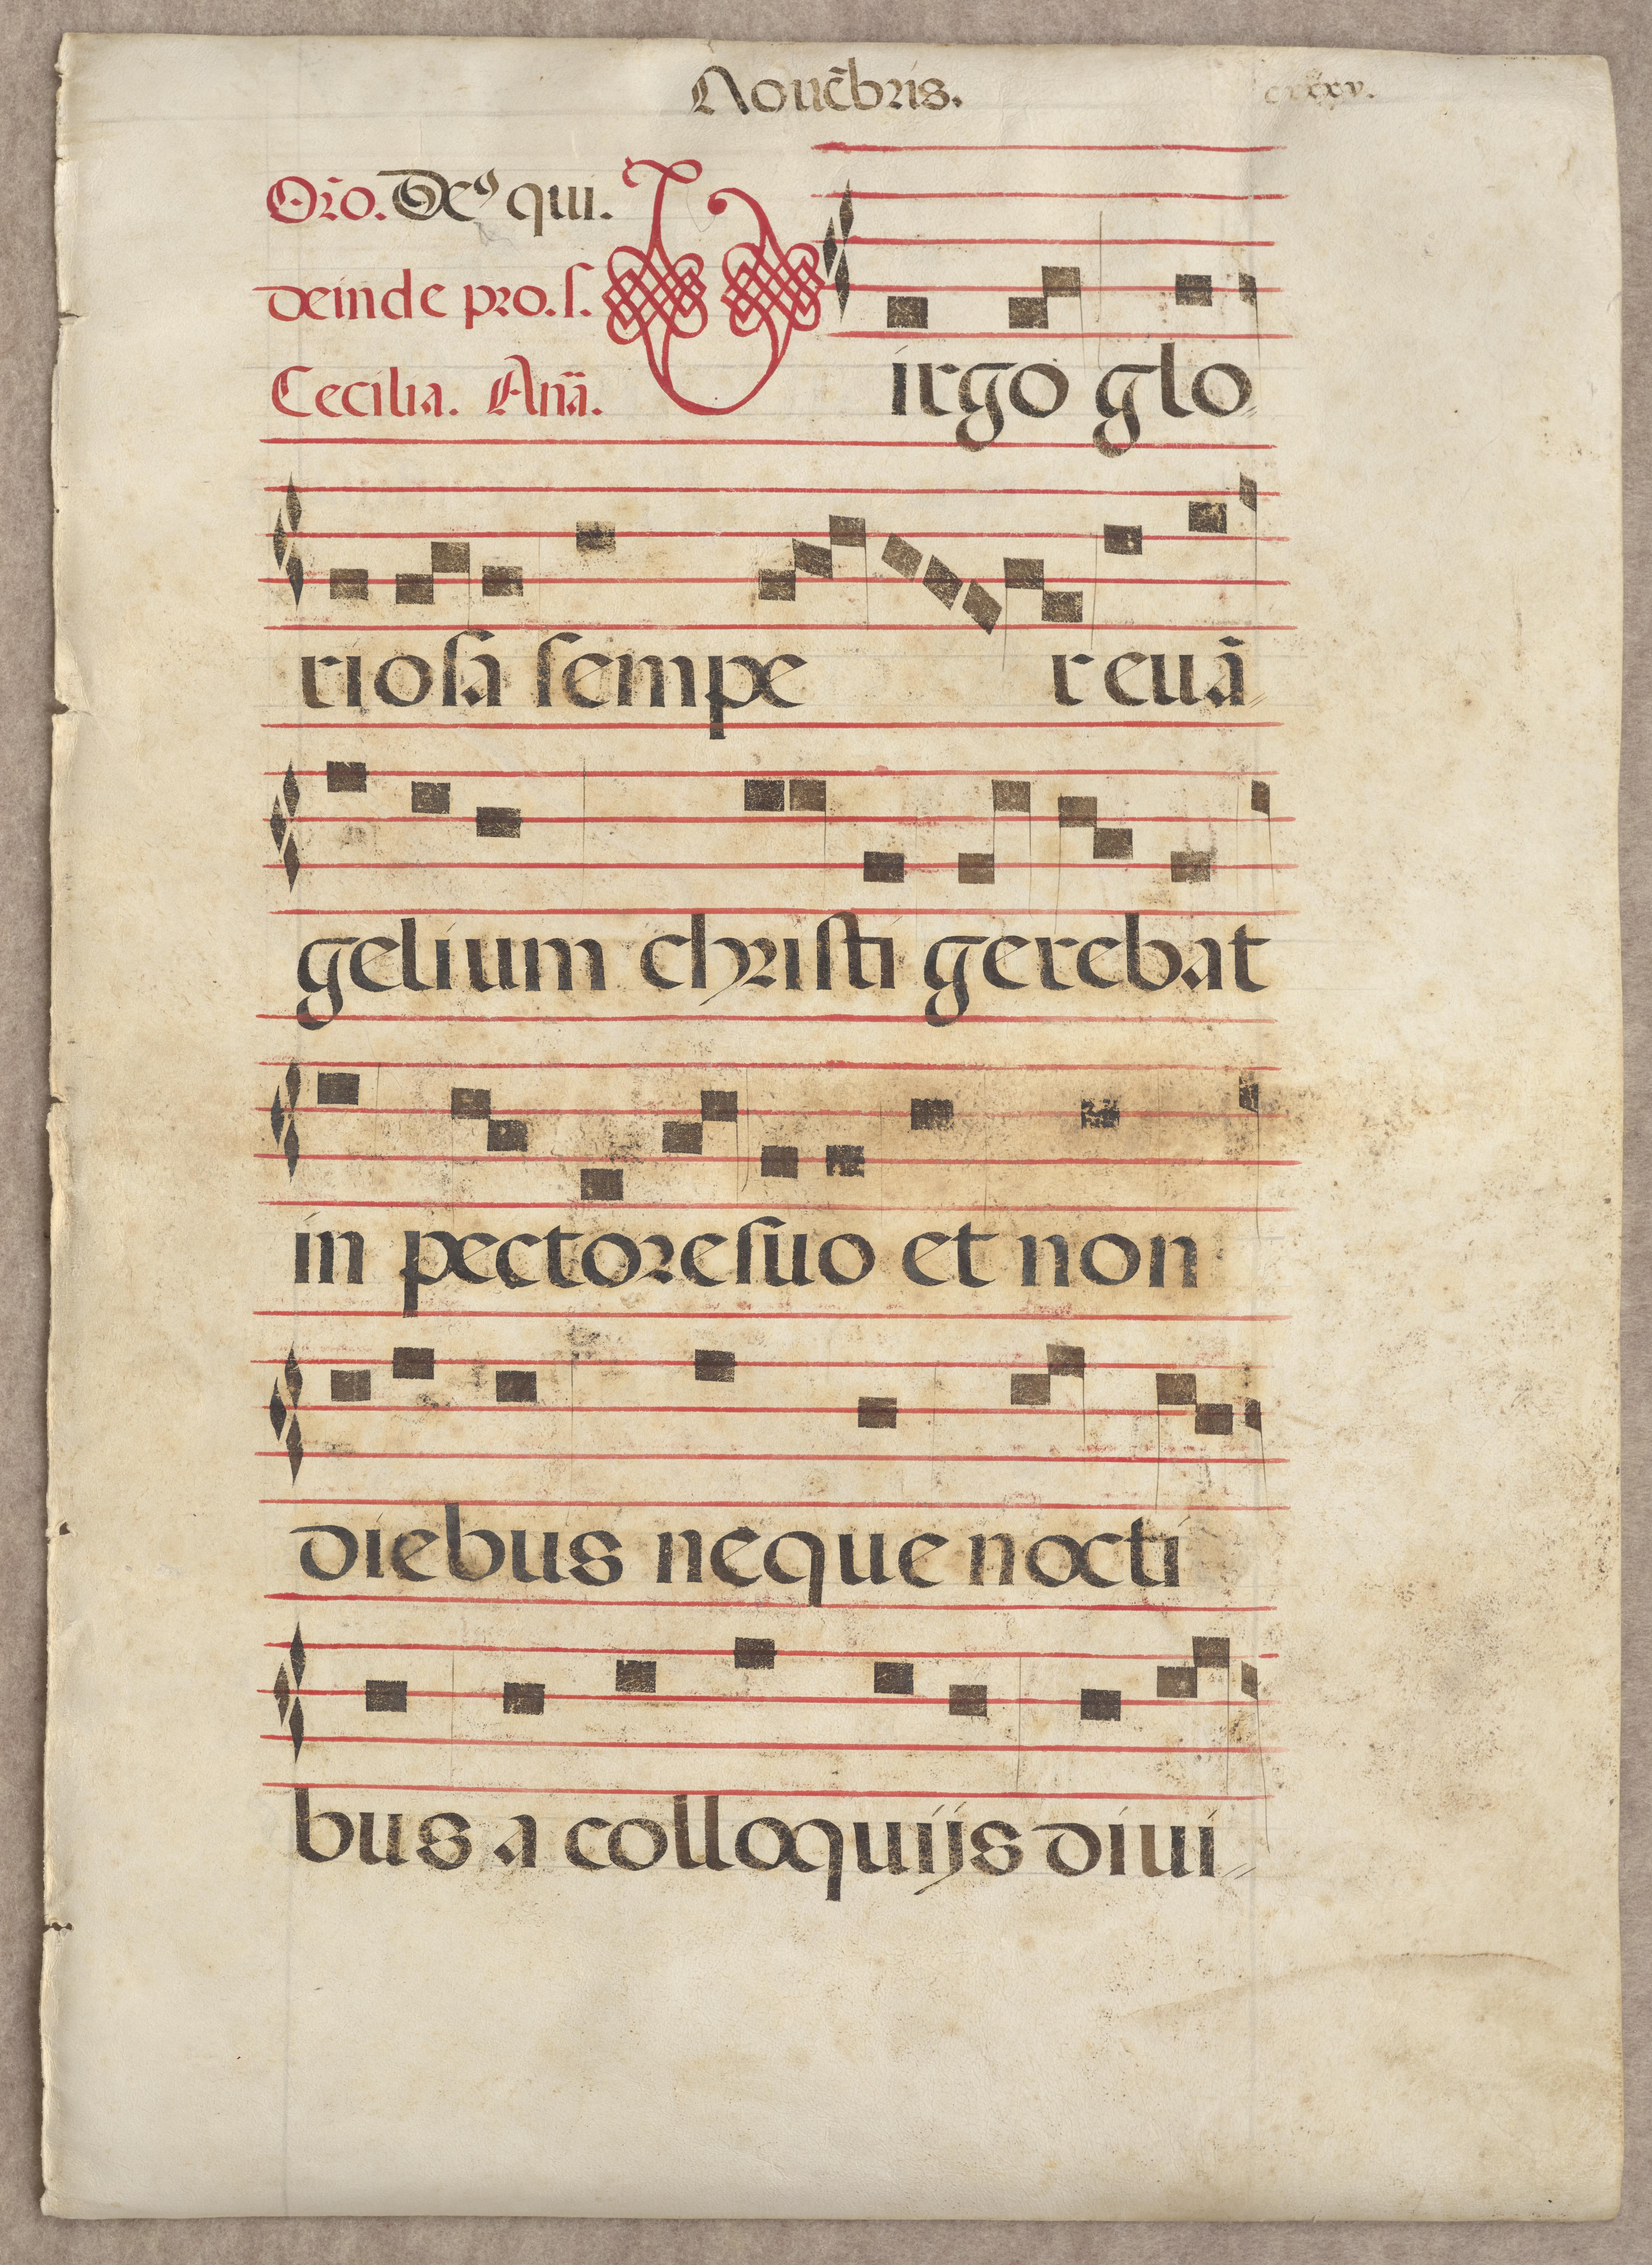 Nouẽbris.
cxxxv.
Or̃o. Deꝰ qui.
deinde pro. ſ.
Cecilia. Anã.
Virgo glo
rioſa ſempe r euã
gelium chriſti gerebat
in pectoreſuo et non
diebus neque nocti
bus a colloquijs diui